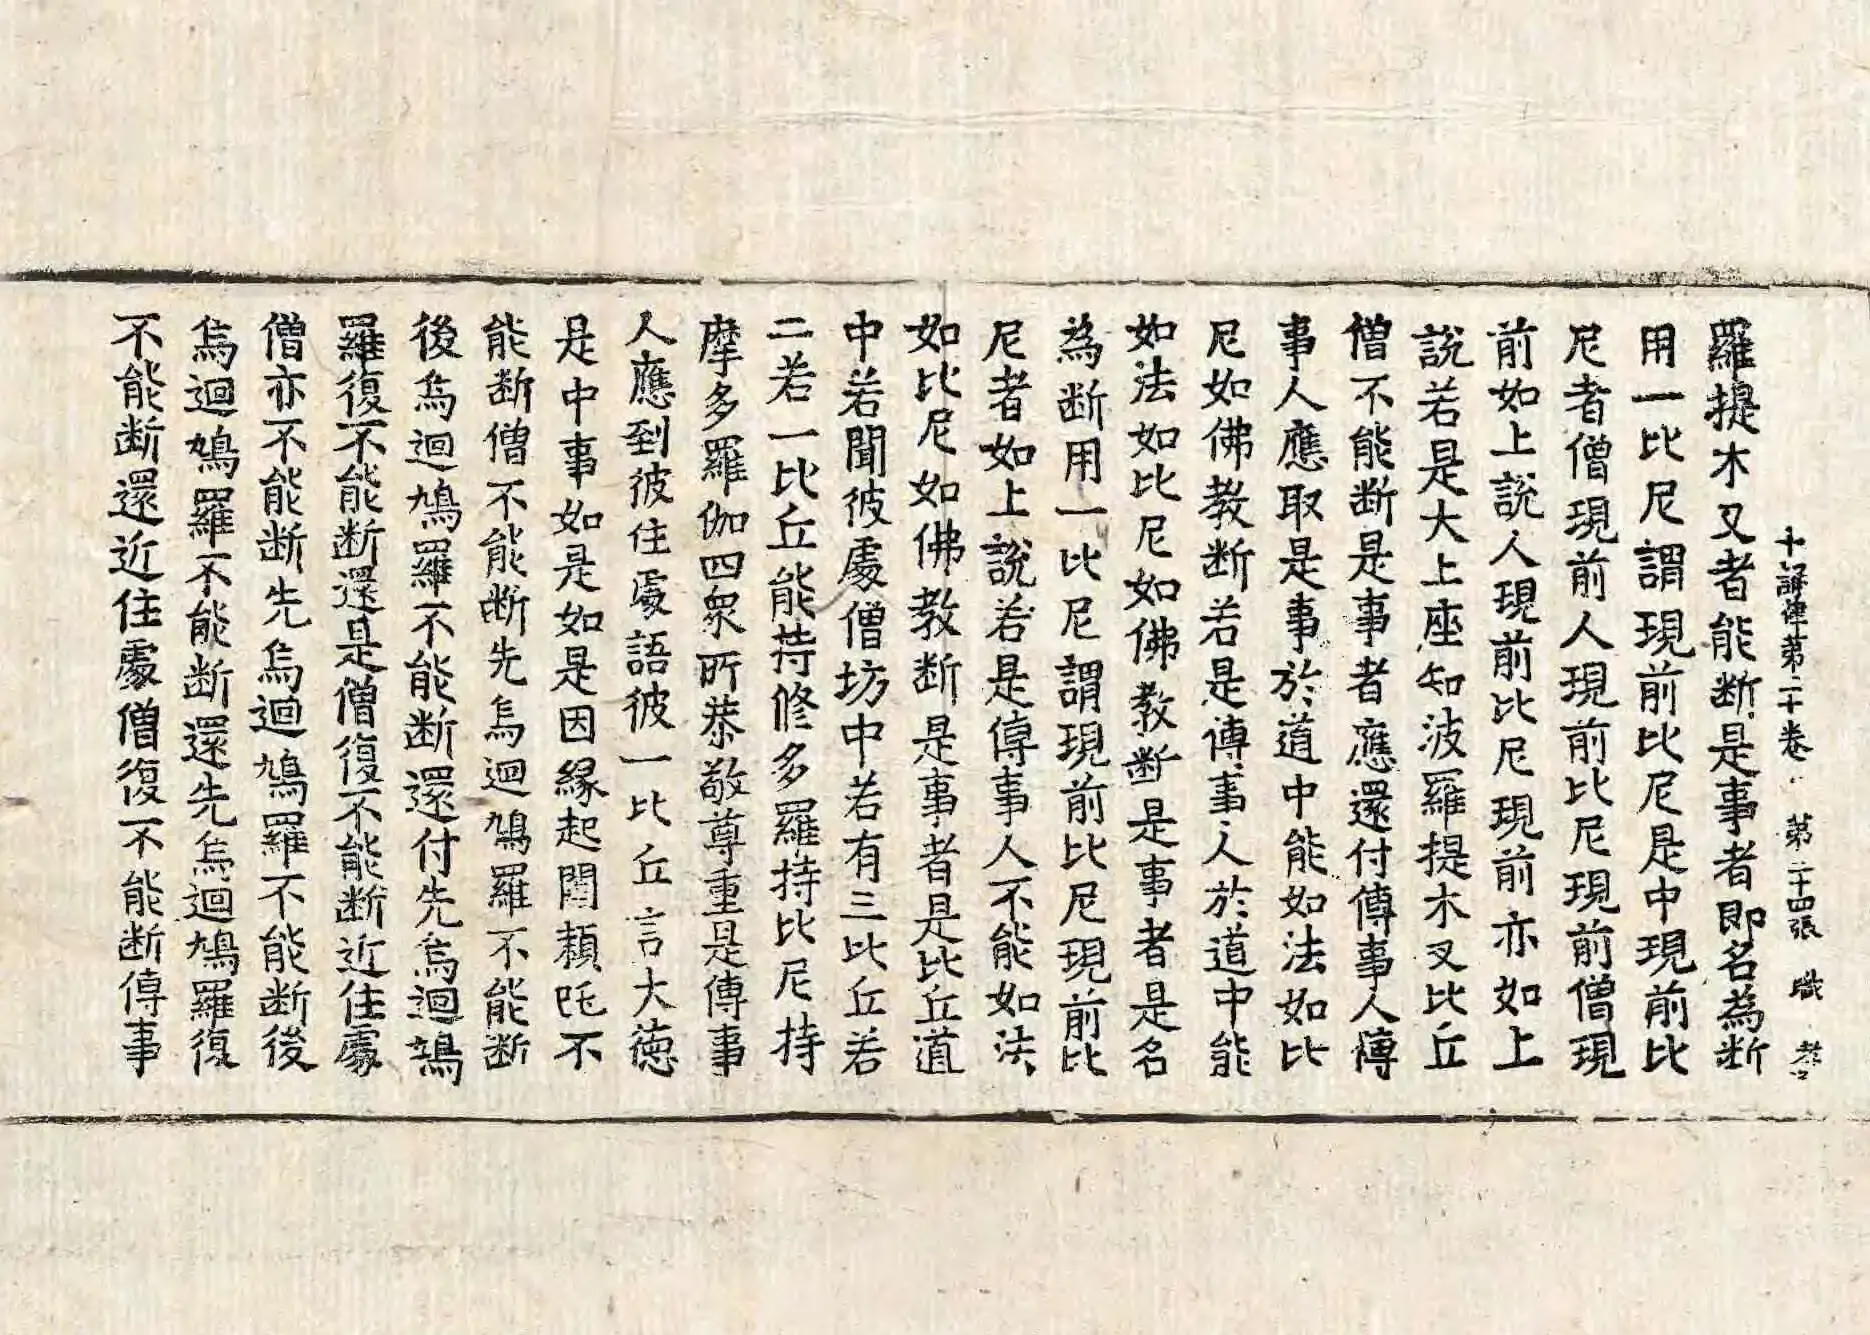 十誦律第二十卷 第二十四張 職
羅提木叉者能断是事者即名為断
用一比尼謂現前比尼是中現前比
尼者僧現前人現前比尼現前僧現
前如上說人現前比尼現前亦如上
說若是大上座知波羅提木叉比丘
僧不能断是事者應還付傳事人傳
事人應取是事於道中能如法如比
尼如佛教断若是傳事人於道中能
如法如比尼如佛教断是事者是名
為断用一比尼謂現前比尼現前比
尼者如上說若是傳事人不能如法
如比尼如佛教断是事者是比丘道
中若聞彼住處僧坊中若有三比丘若
二若一比丘能持修多羅持比尼持
摩多羅伽四衆所恭敬尊重是傳事
人應到彼住處語彼一比丘言大徳
是中事如是如是因緣起闥賴吒不
能断僧不能断先烏迴鳩羅不能断
後烏迴鳩羅不能断還付先烏迴鳩
羅復不能断還是僧復不能断近住處
僧亦不能断先烏迴鳩羅不能断後
烏迴鳩羅不能断還先烏迴鳩羅復
不能断還近住處僧復不能断傳事